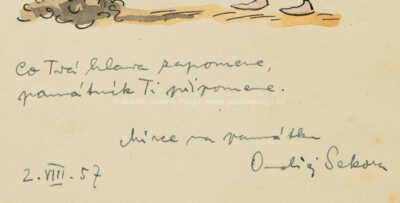 Co Tvá hlava zapomene,
památník Ti připomene.
Mirce na památku
2. VIII. 57
Ondřej Sekora